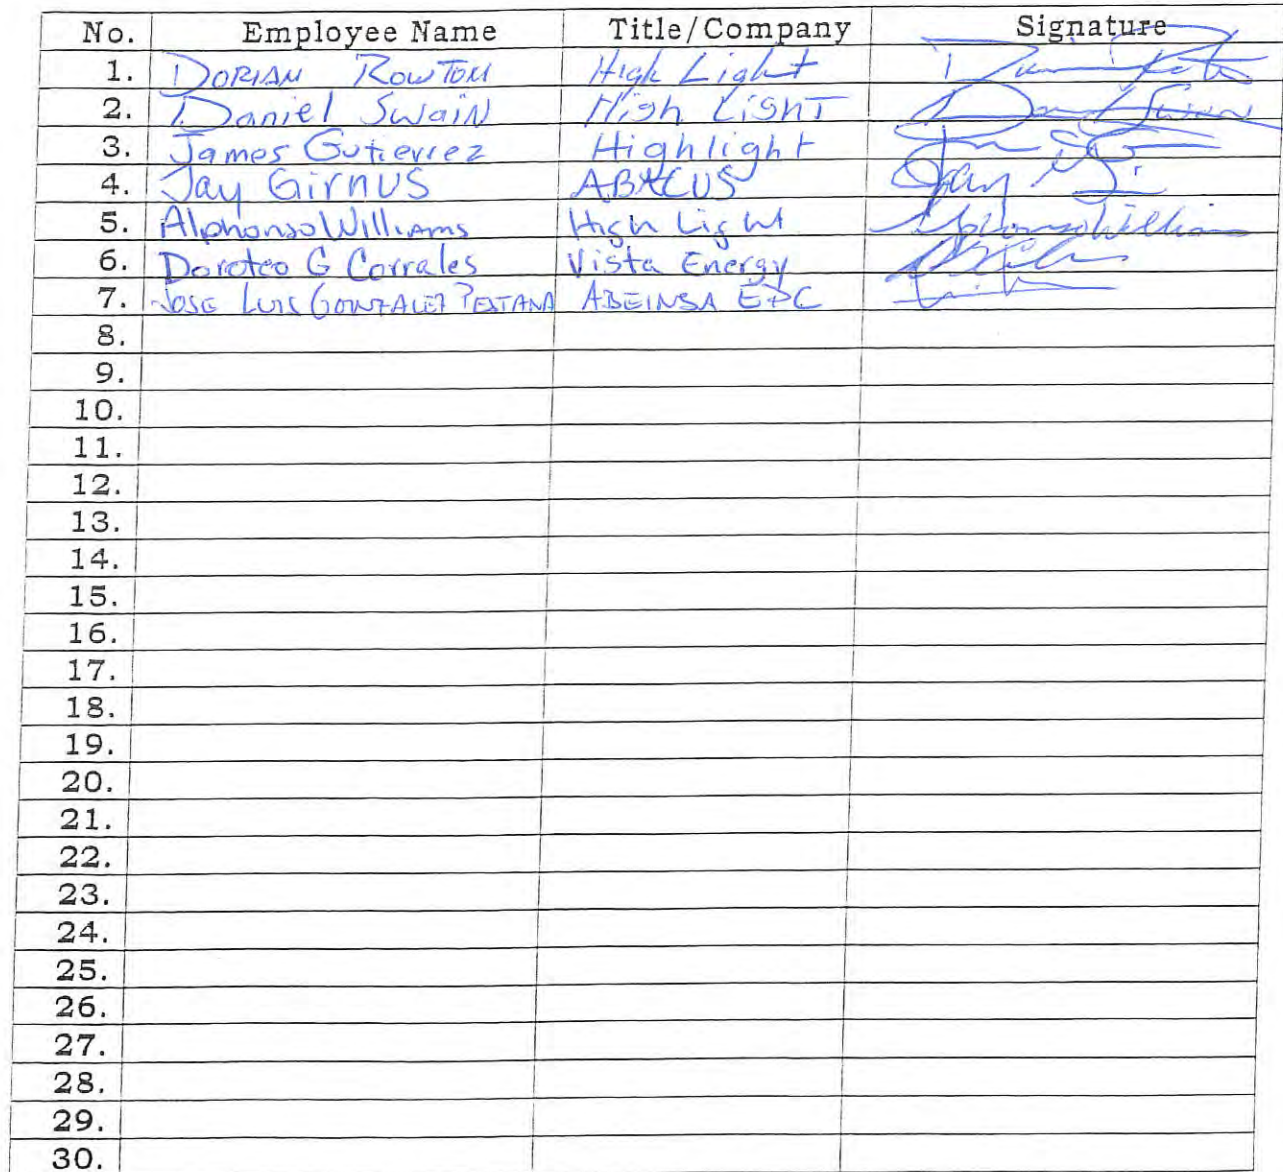 No. Employee Name Title/Company Signature
1. DORIAN ROWTON High Light
2. Daniel Swain High Light
3. James Gutierrez Highlight
4. Jay Girnus ABACUS Jay
5. Alphonso Williams High Light Alphonso Williams
6. Doroteo G Corrales Vista Energy
7. JOSE LUIS GONZALEZ PESTANA ABEINSA EPC
8.
9.
10.
11.
12.
13.
14.
15.
16.
17.
18.
19.
20.
21.
22.
23.
24.
25.
26.
27.
28.
29.
30.